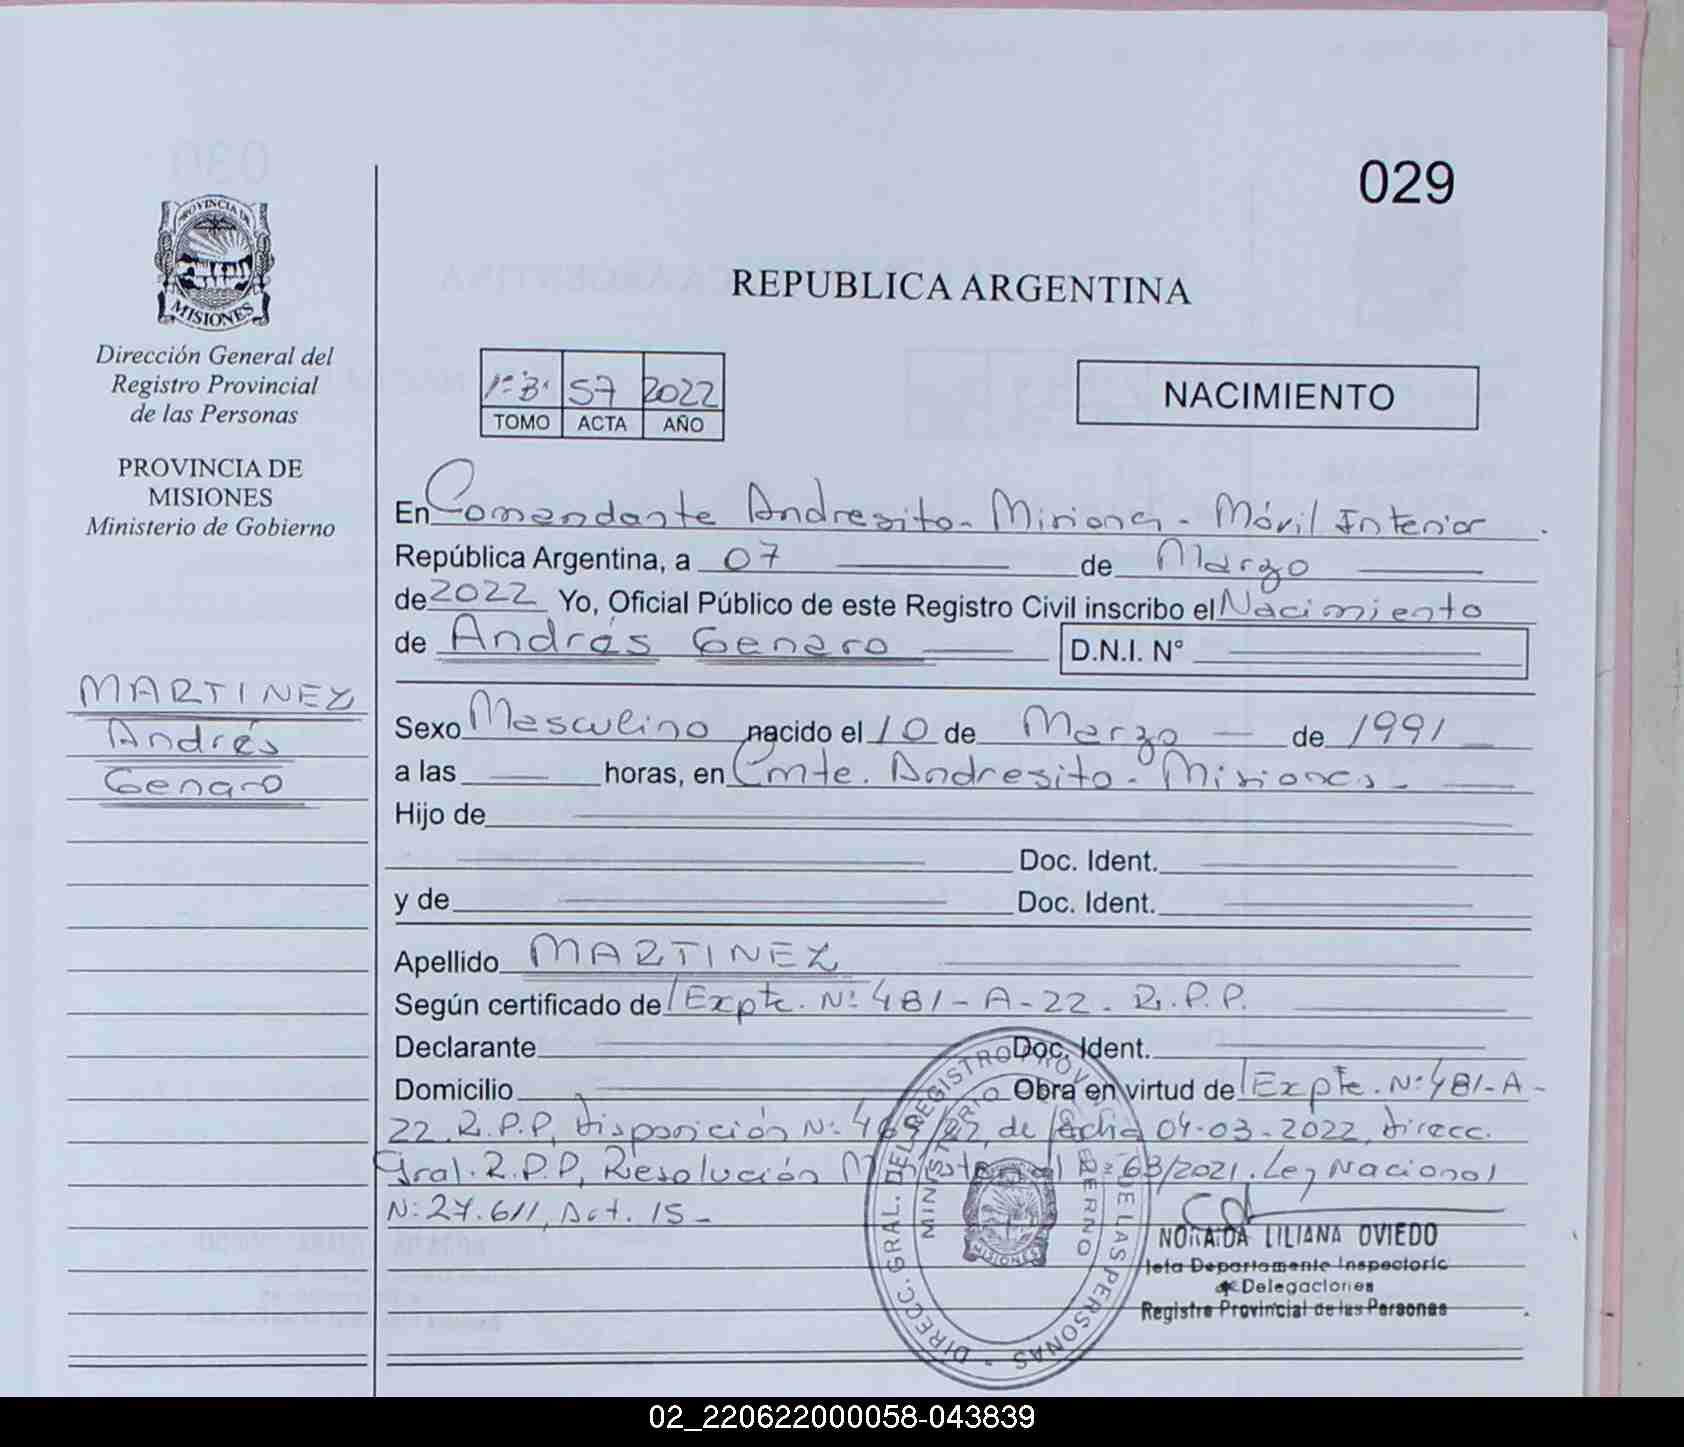 029
PROVINCIA DE
MISIONES
Dirección General del
Registro Provincial
de las Personas
PROVINCIA DE
MISIONES
Ministerio de Gobierno
MARTINEZ
Andrés
Genaro
REPUBLICA ARGENTINA
1º "B" 57 2022
TOMO ACTA AÑO
NACIMIENTO
En Comandante Andresito - Misiones - Móvil Interior
República Argentina, a 07 de Marzo
de 2022 Yo, Oficial Público de este Registro Civil inscribo el Nacimiento
de Andrés Genaro D.N.I. Nº
Sexo Masculino nacido el 10 de Marzo de 1991
a las horas, en Cmte. Andresito - Misiones -
Hijo de
Doc. Ident.
y de Doc. Ident.
Apellido MARTINEZ
Según certificado de Expte. Nº 481-A-22. R.P.P.
Declarante Doc. Ident.
Domicilio Obra en virtud de Expte. Nº 481-A-
22. R.P.P, Disposición Nº /22, de fecha 04-03-2022, Direcc.
Gral. R.P.P, Resolución Ministerial 63/2021. Ley Nacional
Nº 27.611, Art. 15 -
DIRECC. GRAL. DEL REGISTRO PROVINCIAL DE LAS PERSONAS
MINISTERIO GOBIERNO
MISIONES
NORAIDA LILIANA OVIEDO
Jefa Departamento Inspectoria
Delegaciones
Registro Provincial de las Personas
02_220622000058-043839